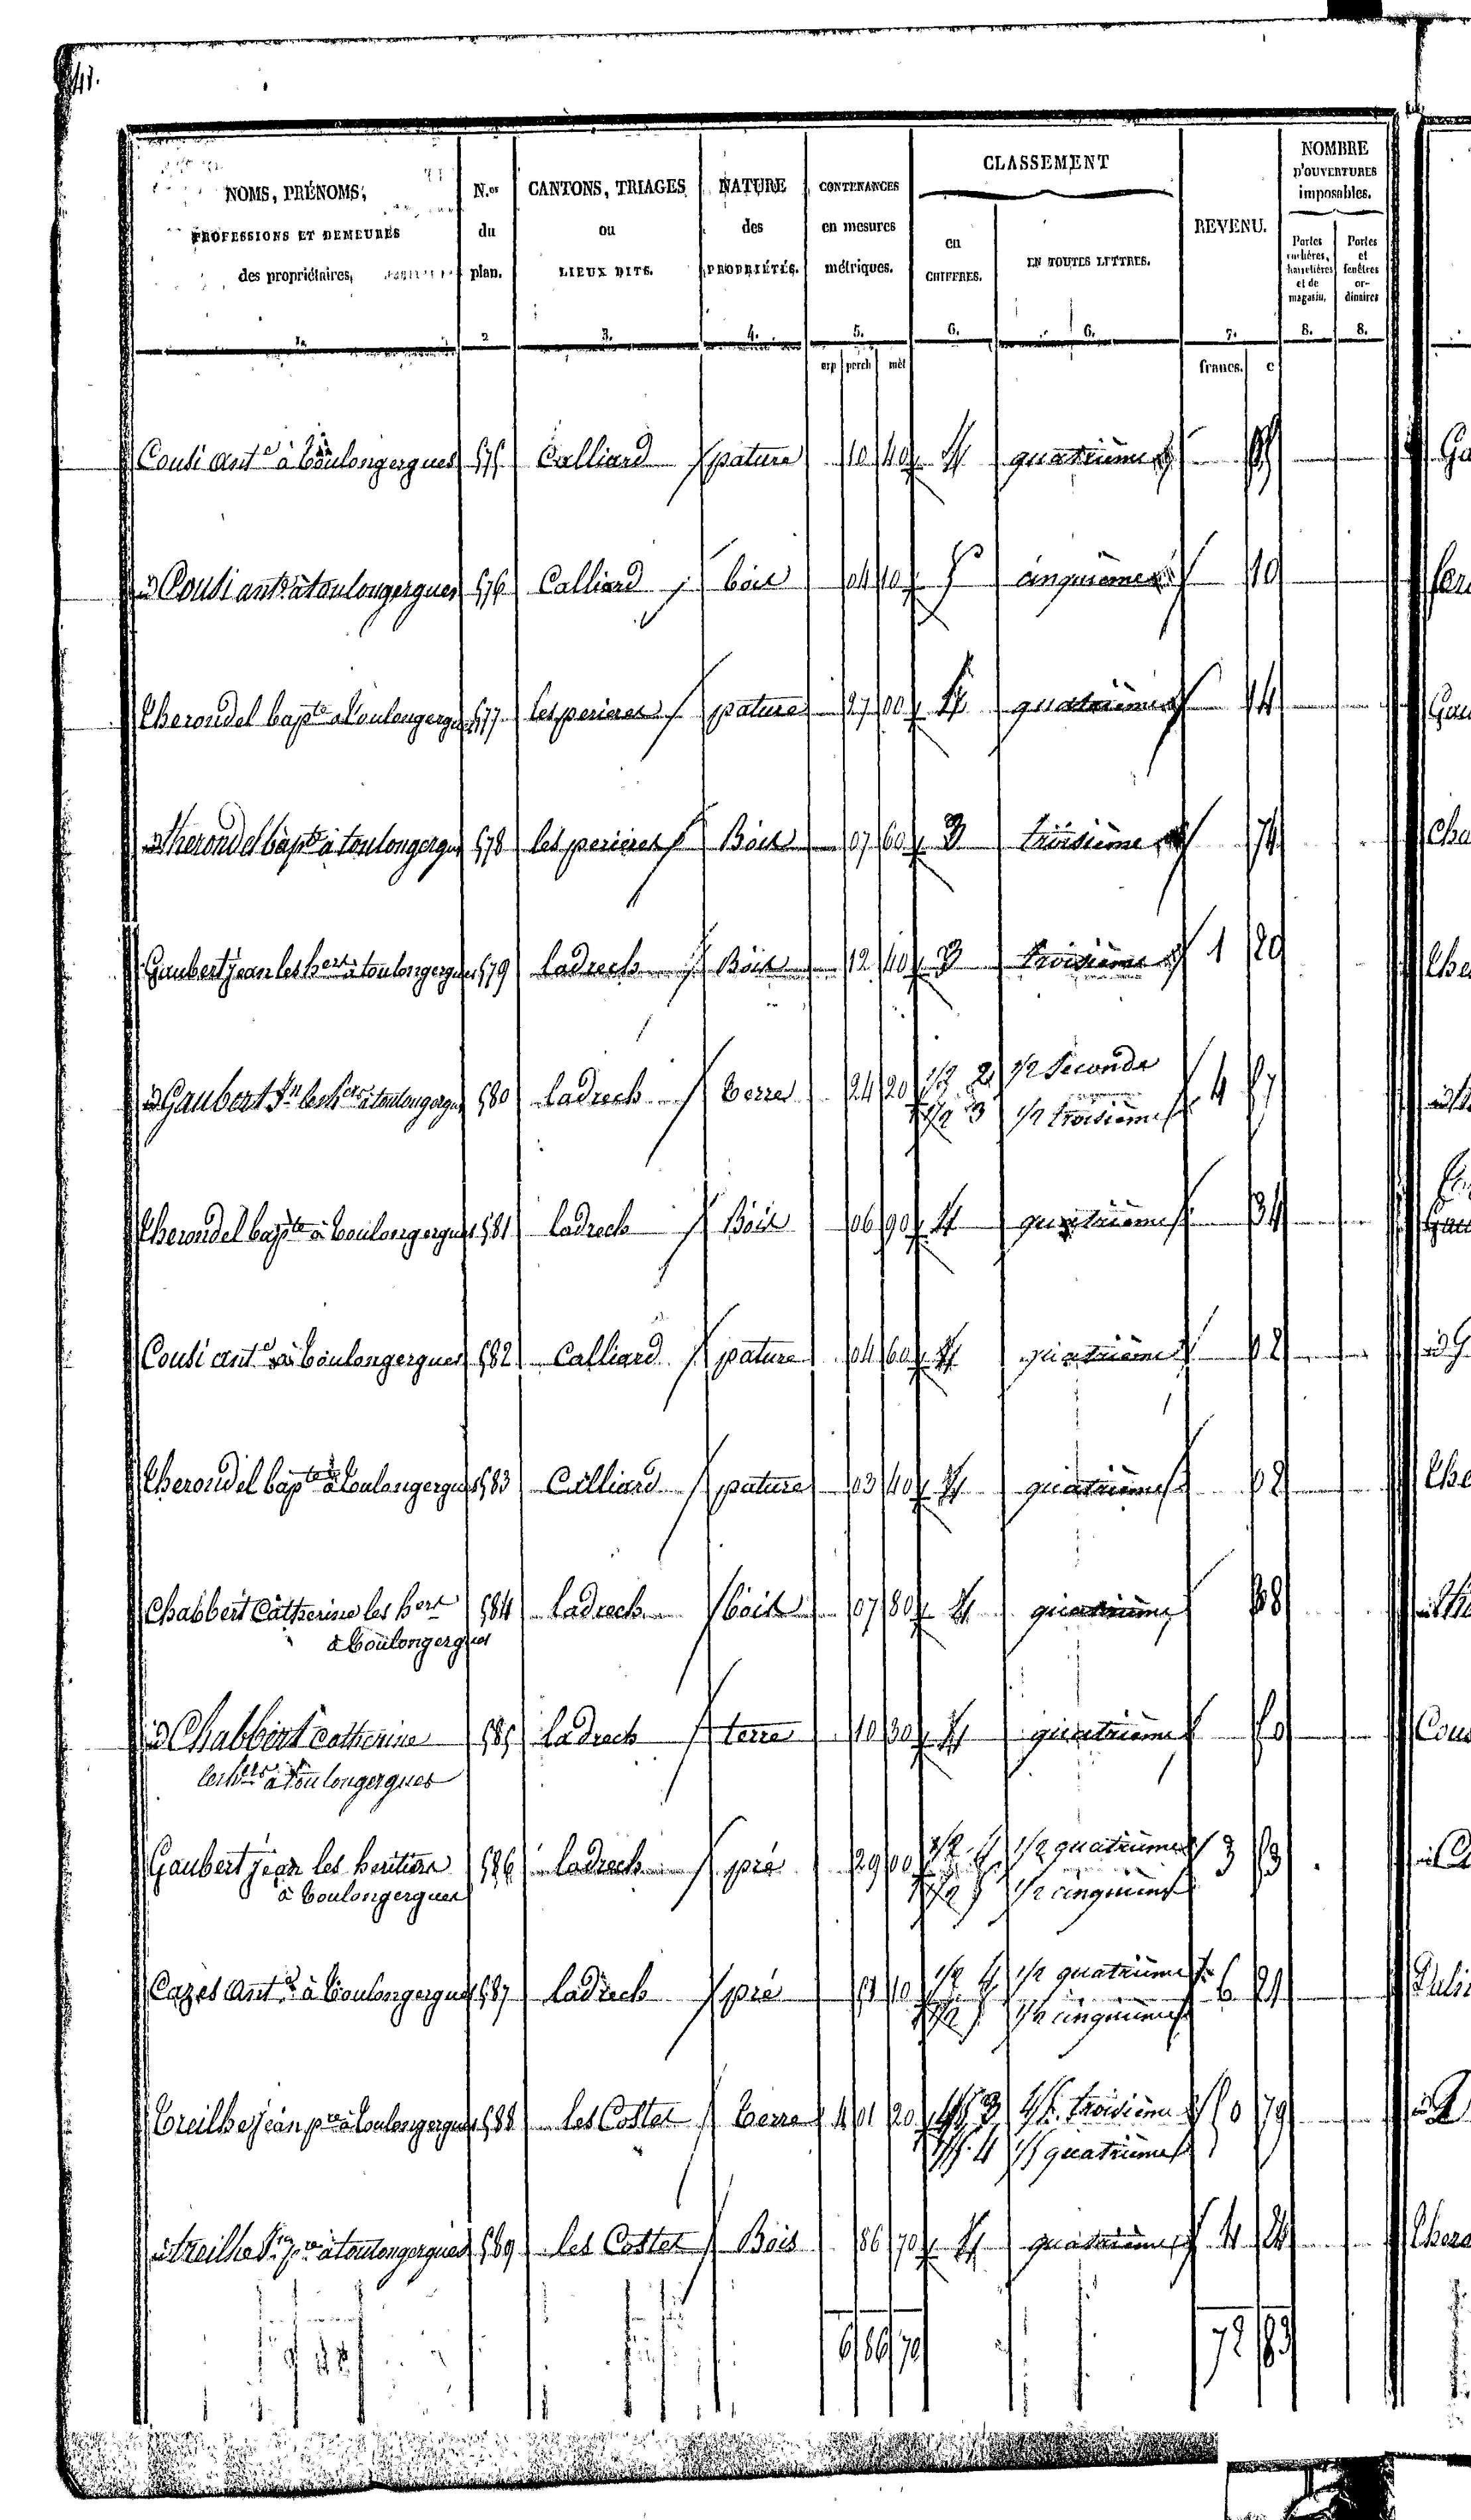 41.
NOMS, PRÉNOMS, PROFESSIONS ET DEMEURES des propriétaires, | N.os du plan. | CANTONS, TRIAGES ou LIEUX DITS. | NATURE des PROPRIÉTÉS. | CONTENANCES en mesures métriques. | CLASSEMENT en CHIFFRES. | EN TOUTES LETTRES. | REVENU. | NOMBRE D'OUVERTURES imposables. Portes cochères, charretières et de magasin, | Portes et fenêtres ordinaires
1. 2 3. 4. 5. 6. 6. 7. 8. 8.
arp perch mèt francs. c
Cousi ant.e à toulongergues 575 Calliard pature 10 40 4 quatrième
d Cousi ant.e à toulongergues 576 Calliard bois 04 10 5 cinquième 10
therondel bap.te à toulongergues 577 les perieres pature 27 00 4 quatrième 14
d therondel bap.te à toulongergues 578 les perieres Bois 07 60 3 troisième 74
Gaubert jean les hers à toulongergues 579 ladrech Bois 12 40 3 troisième 1 20
d Gaubert Jn les hers à toulongergues 580 ladrech terre 24 20 1/2 2 1/2 Seconde 4 57
1/2 3 1/2 troisième
therondel bap.te à toulongergues 581 ladrech Bois 06 90 4 quatrième 34
Cousi ant.e à toulongergues 582 Calliard pature 04 60 4 quatrième 02
therondel bap.te à toulongergues 583 Calliard pature 03 40 4 quatrième 02
Chabbert Catherine les hers 584 ladrech bois 07 80 4 quatrième 38
à toulongergues
d Chabbert Catherine 585 ladrech terre 10 30 4 quatrième 50
les hers à toulongergues
Gaubert jean les heritiers 586 ladrech pré 29 00 1/2 4 1/2 quatrième 3 53
à toulongergues 1/2 5 1/2 cinquième
Cazes Ant.e à toulongergues 587 ladrech pré 51 10 1/2 4 1/2 quatrième 6 21
1/2 5 1/2 cinquième
treilhe jean p.re à toulongergues 588 les Costes terre 4 01 20 4/5 3 4/5 troisième 50 79
1/5 4 1/5 quatrième
d treilhe Jn p.re à toulongergues 589 les Costes Bois 86 70 4 quatrième 4 24
6 86 70 72 83